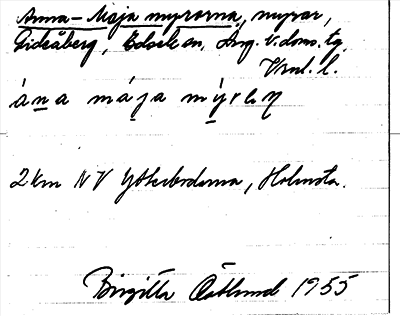 Anna-Maja myrorna, myrar,
Gideåberg, Edsele sn, Ång. V. doms. tg,
Vnl. l.
ána mája mýrɳ
2 km NV Ytterbodarna, Holmsta.
Birgitta Östlund 1955